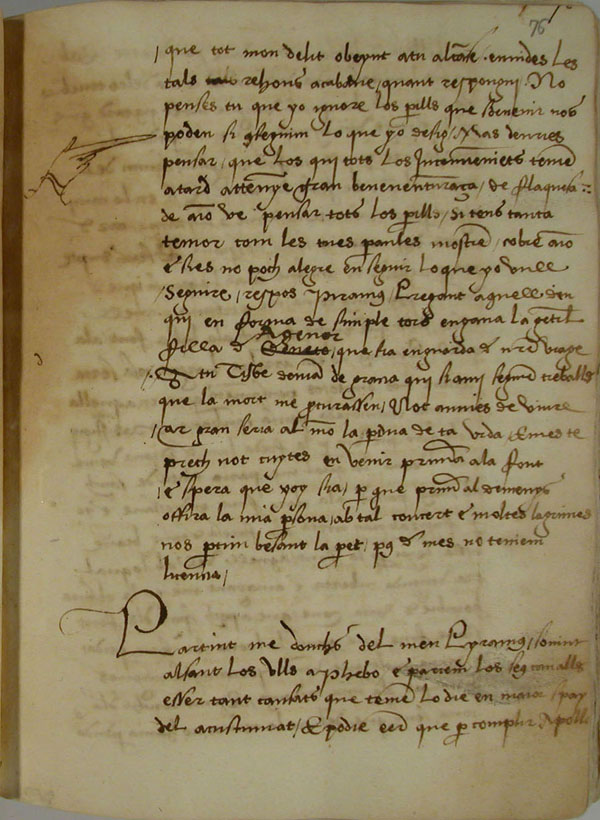 76
que tot mon delit obeynt a tu alcāse. enuides les
tals rahons acabaue, quant respongui. No
penses tu que yo ignore los perills que seuenir nos
poden si seguim lo que yo desig. Mas deuries
pensar, que los qui tots los Inconueniēts temē
a tard attenyē gran benauenturāça, de flaquesa
de aīo ve pensar tots los perills, si tens tanta
temor com les tues paraules mostrē, cobre aīo
e sies no poch alegre en seguir lo que yo vull
Seguire, respos Piramus, Pregant aquell deu
qui en forma de simple toro engana la gētil
filla de Agenor, que sia en guarda de nr̄e viage
E tu Tisbe deuina de grama qui si ami seguiē treballs
que la mort me procurassen, No't ānuies de viure
car gran seria al mō la perdua de ta vida, E mes te
prech not cuytes en venir primera a la font
e spera que yo y sia, per que primer al demenys
offira la mia persona, ab tal concert e moltes lagrimes
nos partim besant la paret, pus de mes no teniem
licencia,
Partint me donchs del meu Pyramus, souint
alsant los vlls a Phebo e parien los seus caualls
esser tant cansats que temē lo die en maior spay
del acustumat, E podie eēr que per complir Apollo